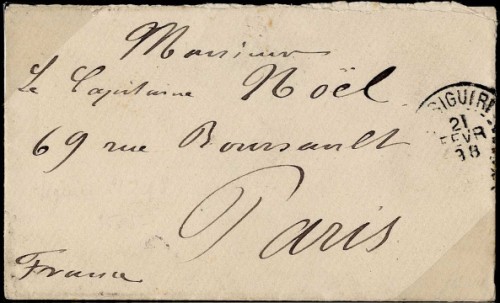 Monsieur
Le Capitaine Noël
69 rue Boursault
Paris
France
SIGUIRI
21
FEVR